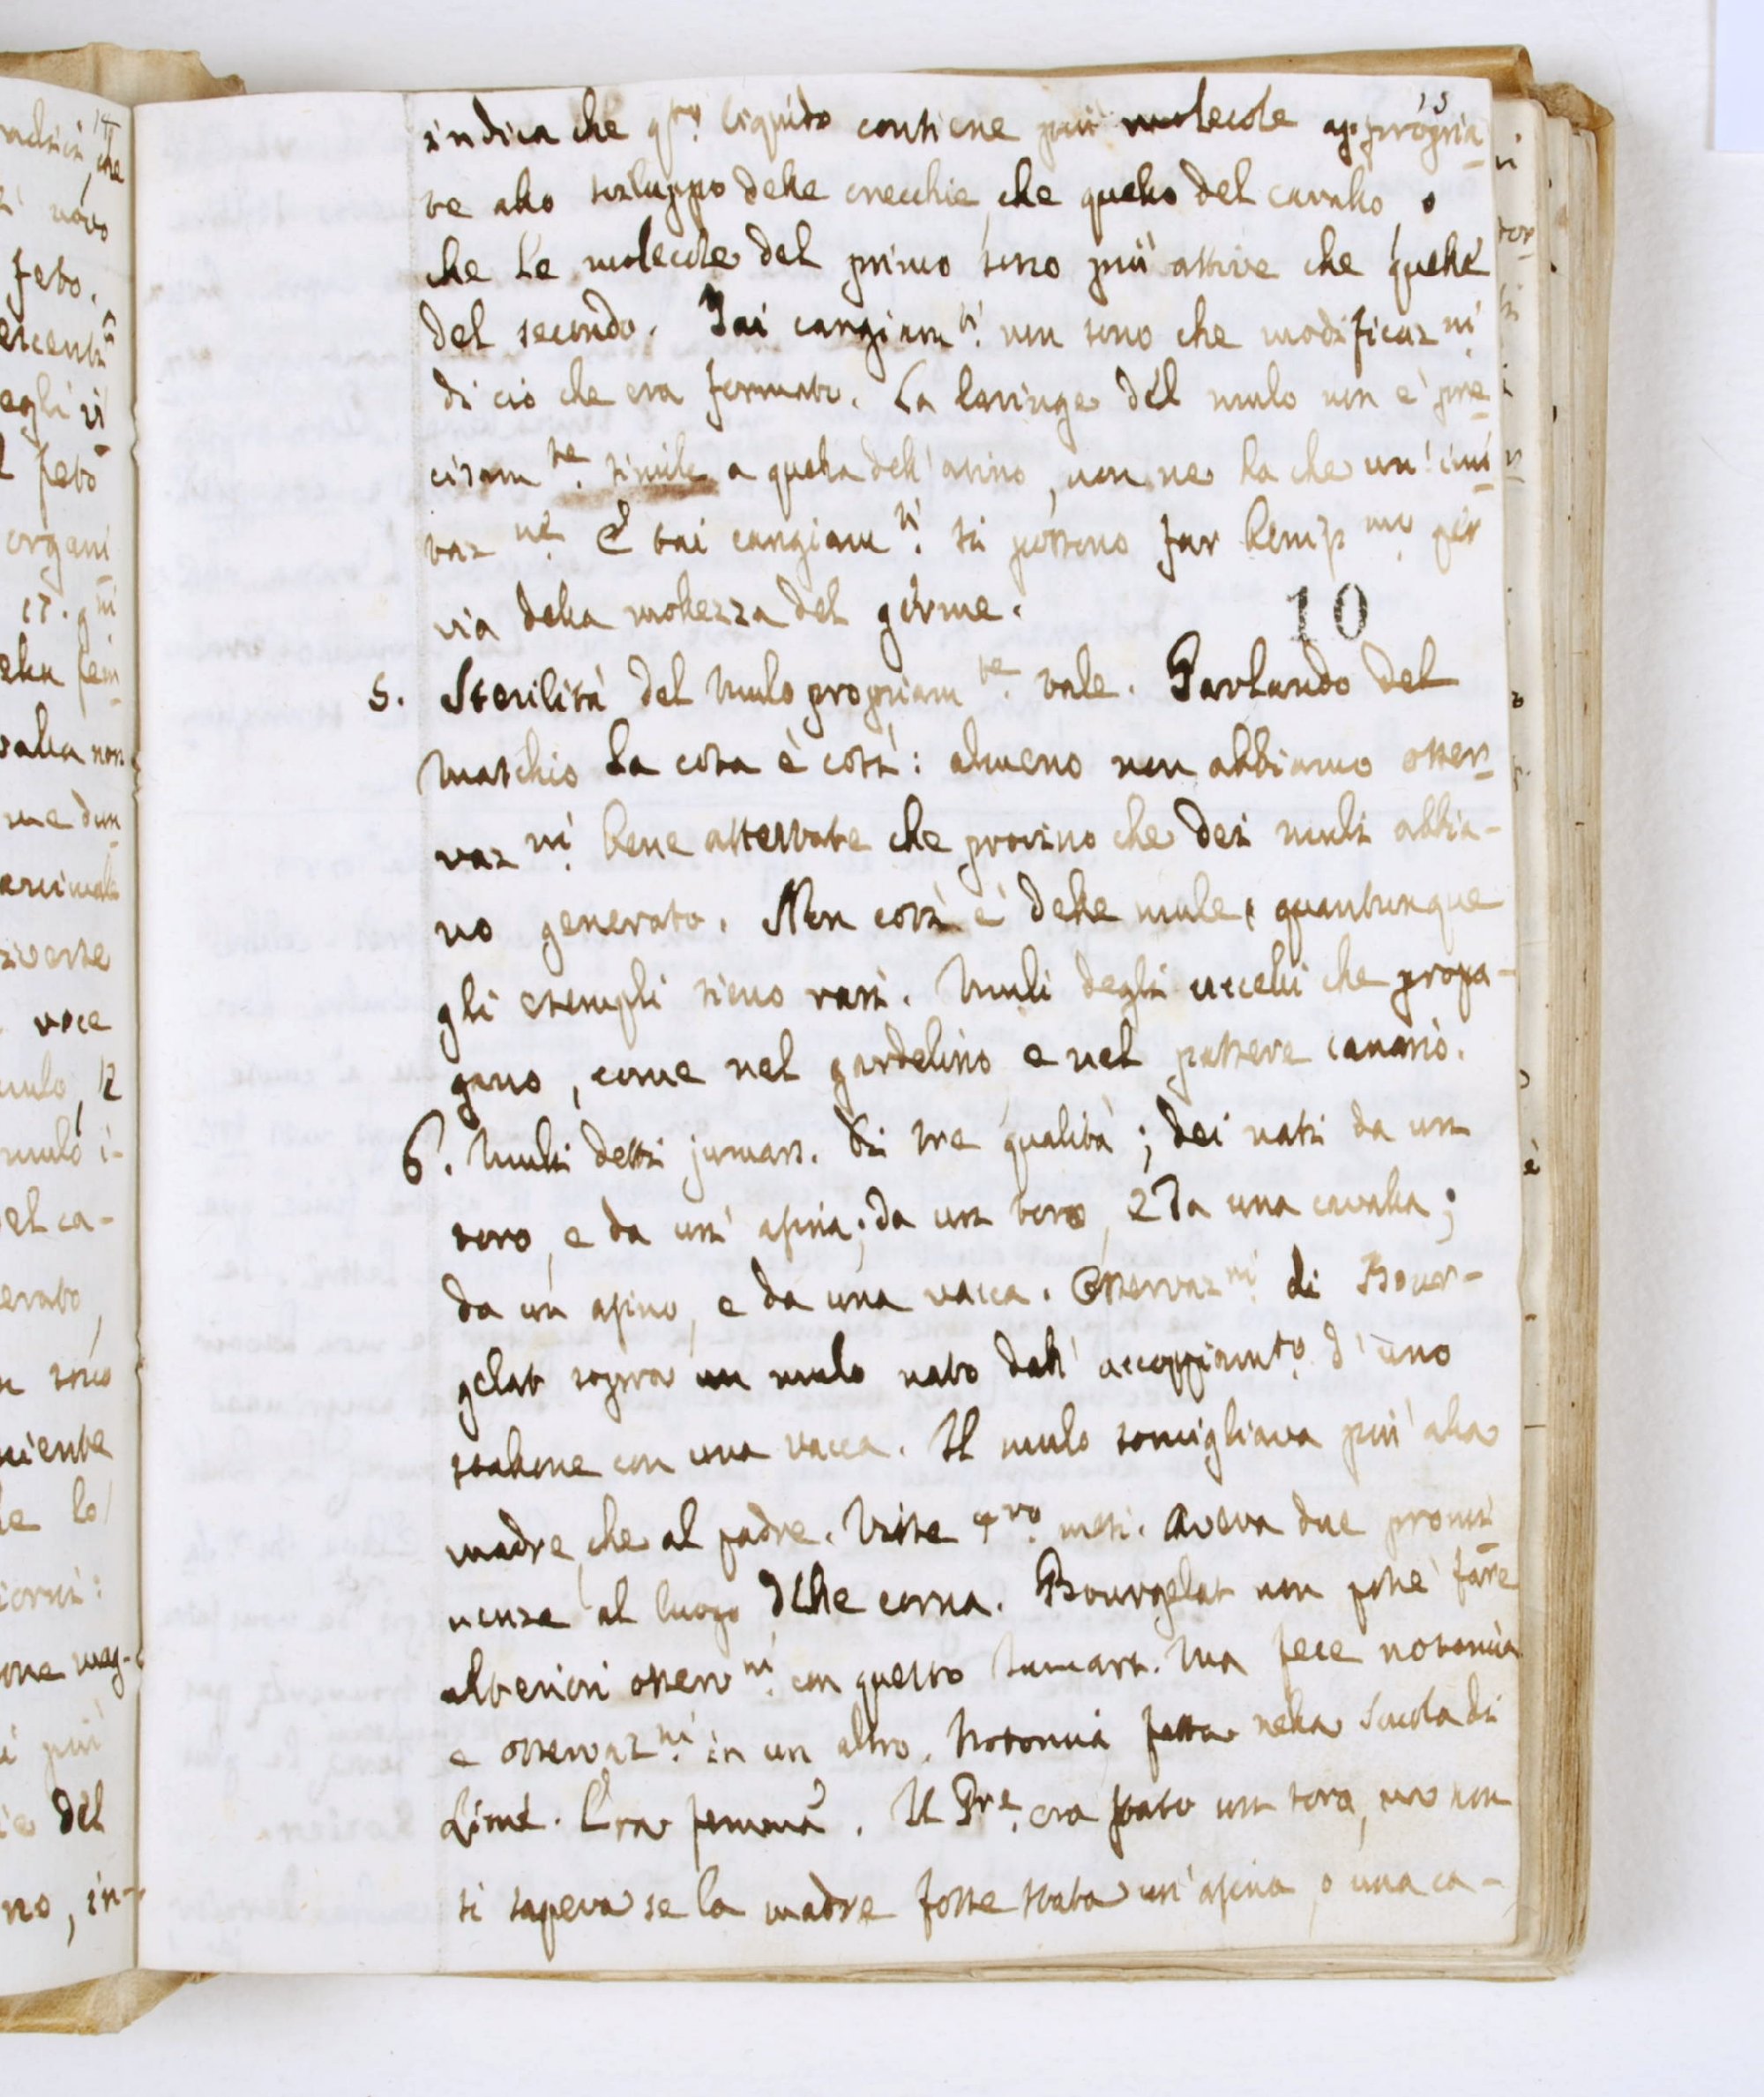 15
indica che q.sto liquido contiene più molecole appropria
te allo sviluppo delle orecchie, che quello del cavallo, o
che le molecole del primo sono più attive che quelle
del secondo. Tai cangiam.ti non sono che modificaz.ni
di ciò che era formato. La laringe del mulo non è pre
cisam.te simile a quella dell'asino, non ne ha che un'imi
taz.ne. E tai cangiam.ti si possono far beniss.mo per
via della mollezza del germe.
10
5. Sterilità del Mulo propriam.te tale. Parlando del
maschio la cosa è così: almeno non abbiamo osser
vaz.ni bene attestate che provino che dei muli abbia-
no generato. Non così è delle mule, quantunque
gli esempli sieno rari. Muli degli uccelli che propa-
gano, come nel gardelino, e nel passere canario.
6. Muli detti jumars. Di tre qualità; dei nati da un
toro, e da un'asina; da un toro, e da una cavalla;
da un asino, e da una vacca. Osservaz.ni di Bour-
gelat sopra un mulo nato dall'accoppiam.to d'uno
stallone con una vacca. Il mulo somigliava più alla
madre, che al padre. Visse 4.ro mesi. Aveva due promi
nenze al luogo delle corna. Bourgelat non potè fare
ulteriori osserv.ni con questo Jumars. Ma fece notomia
e osservaz.ni in un altro. Notomia fatta nella Scuola di
Lione. Era femmina. Il P.re era stato un toro, ma non
si sapeva se la madre fosse stata un'asina, o una ca-